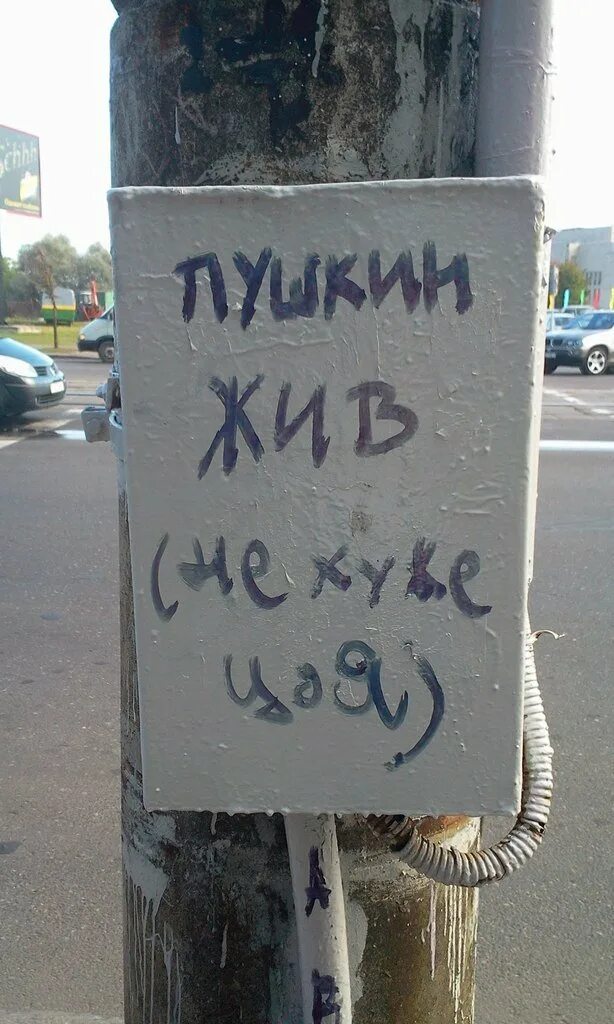 ПУШКИН
ЖИВ
(не хуже
цоя)
А
В